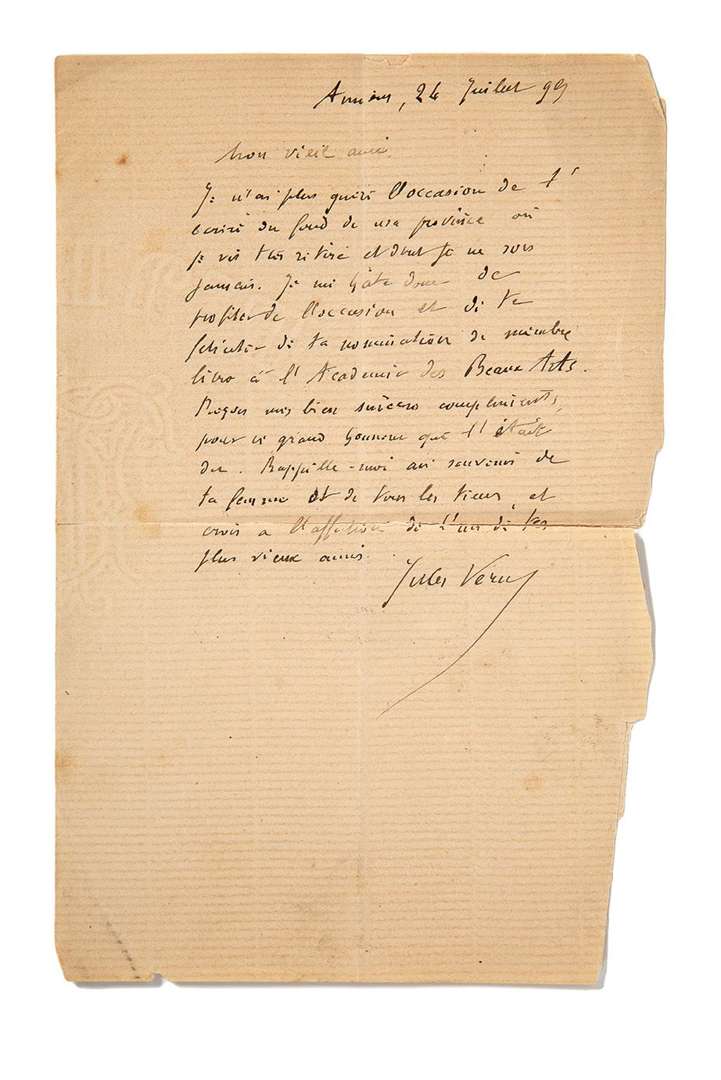 Amiens, 24 Juillet 99
Mon vieil ami,
Je n'ai plus guère l'occasion de t'
écrire du fond de ma province où
je vis très retiré et dont je ne sors
jamais. Je me hâte donc de
profiter de l'occasion et de te
féliciter de ta nomination de membre
libre à l'Academie des Beaux Arts.
Reçois mes bien sincères compliments,
pour ce grand honneur qui t'était
du. Rappelle-moi au souvenir de
ta femme et de tous les tiens, et
crois a l'affection de l'un de tes
plus vieux amis.
Jules Verne